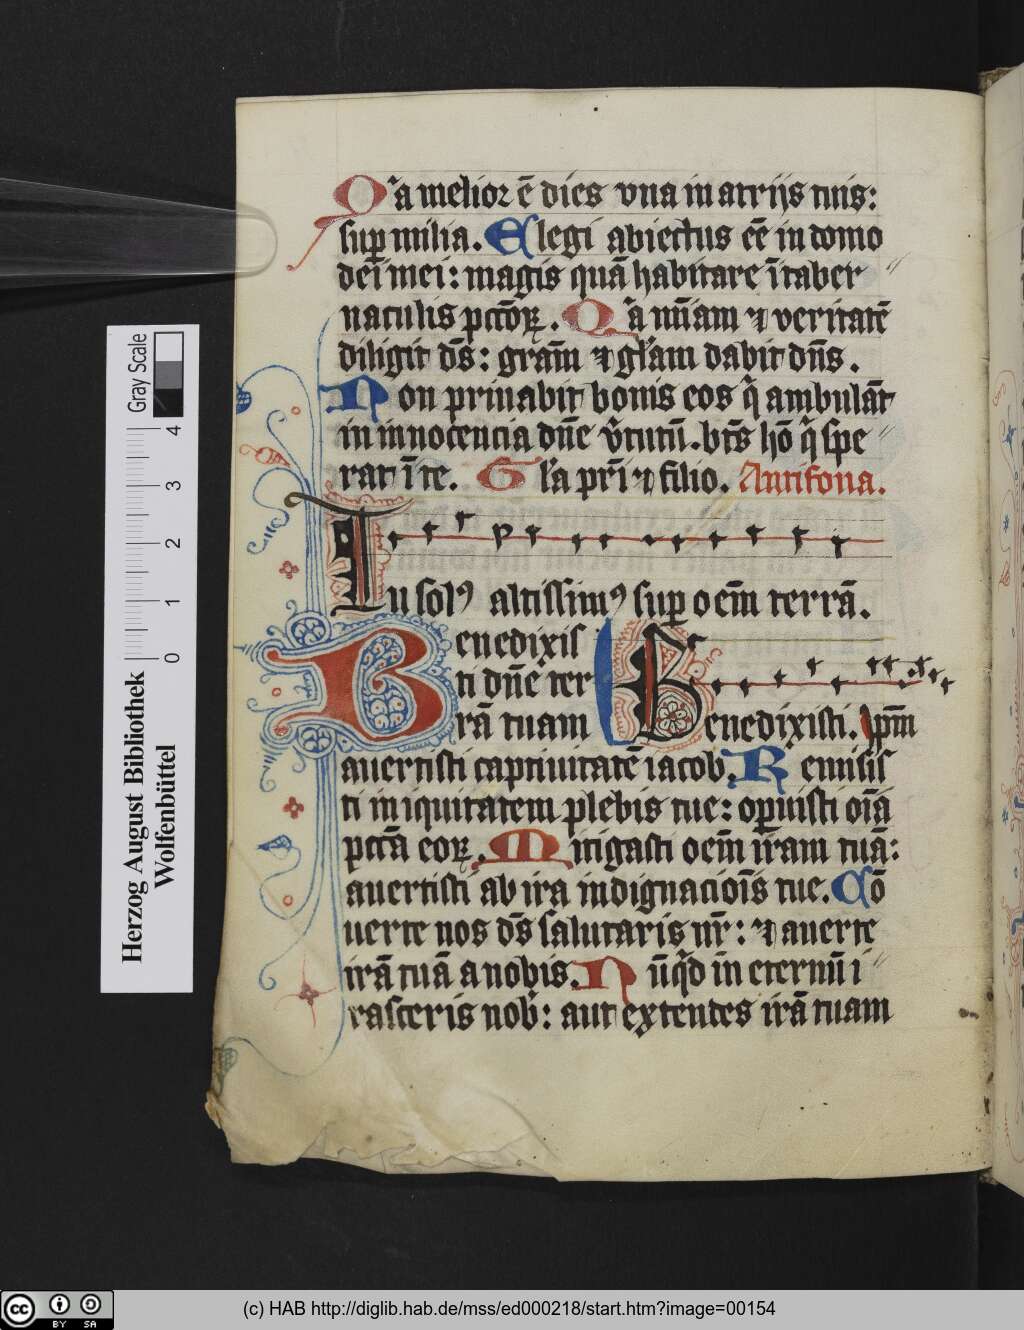 Qa melior ē dies vna in atriis tuis:
sup milia. Elegi abiectus eē in domo
dei mei: magis quā habitare ī taber
naculis pctōꝝ. Qa mīam ⁊ veritatē
diligit dꝰs: grām ⁊ glam dabit dn̄s.
Non priuabit bonis eos qͥ ambulāt
in innocencia dn̄e v̓tutū. bt̄s hō qͥ spe
rat ī te. Gla pr̄i ⁊ filio. Antifona.
Tu solꝰ altissimꝰ sup oem̄ terrā.
Benedixis
ti dn̄e ter
rā tuam Benedixisti. Ipm̄
auertisti captiuitatē iacob. Remisis
ti iniquitatem plebis tue: opuisti oīa
pctā eoꝝ. Mitigasti oem̄ irām tuā:
auertisti ab ira indignaciois̄ tue. Cō
uerte nos ds̄ salutaris nr̄: ⁊ auerte
irā tuā a nobis. Nūqͥd in eternū i
rasceris nob̓: aut extentes irā tuam
Herzog August Bibliothek
Wolfenbüttel
Gray Scale
0 1 2 3 4
cc BY SA
(c) HAB http://diglib.hab.de/mss/ed000218/start.htm?image=00154